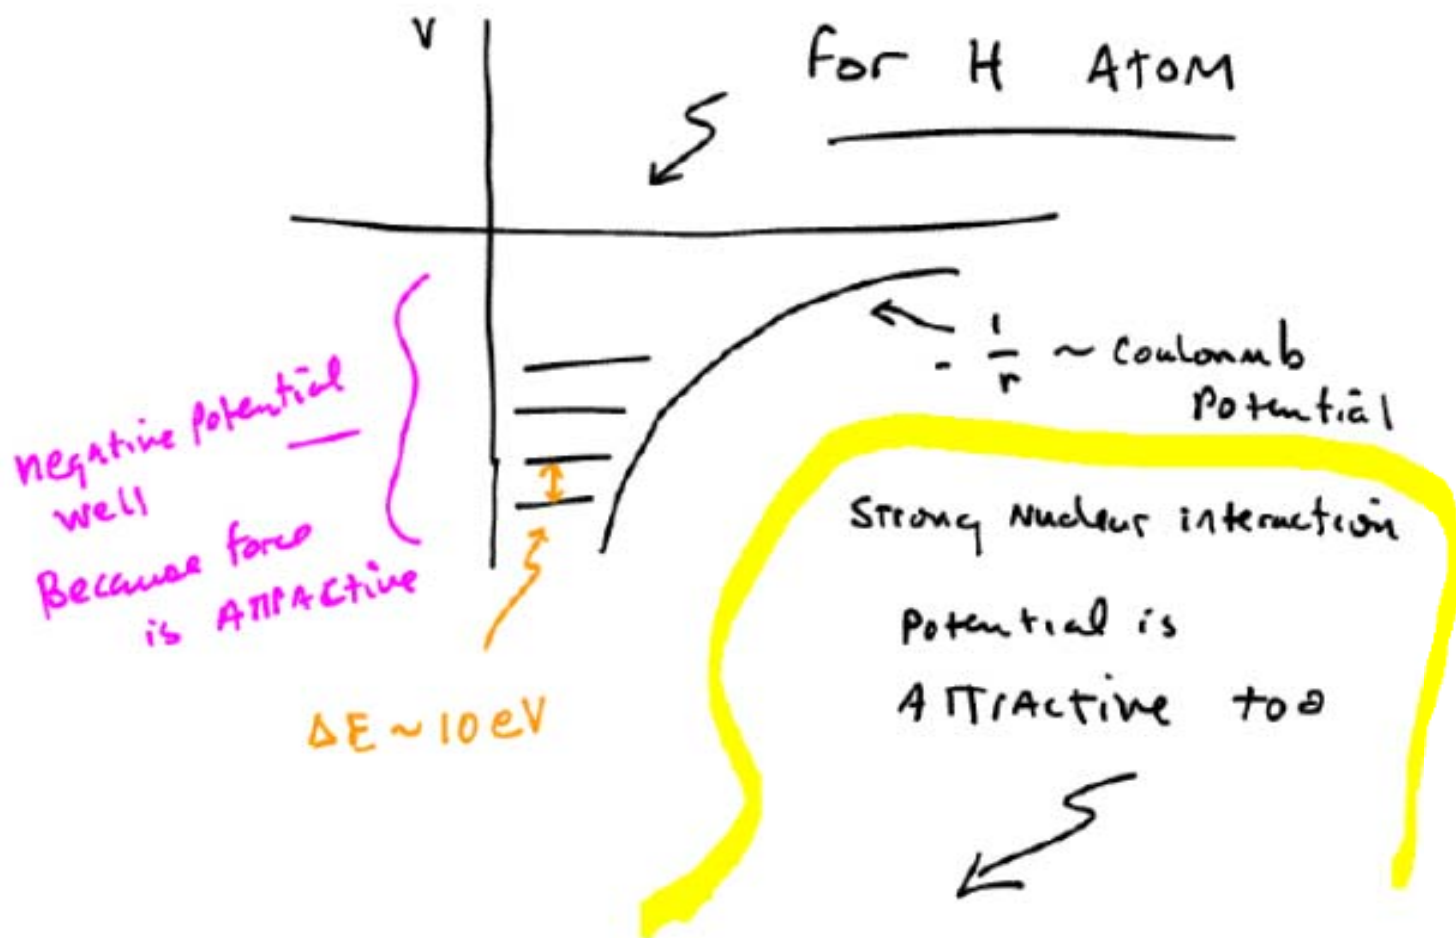 V
For H Atom
- 1/r ~ Coulomb
Potential
negative potential
well
Because force
is Attractive
ΔE ~ 10 eV
Strong Nuclear interaction
Potential is
Attractive too